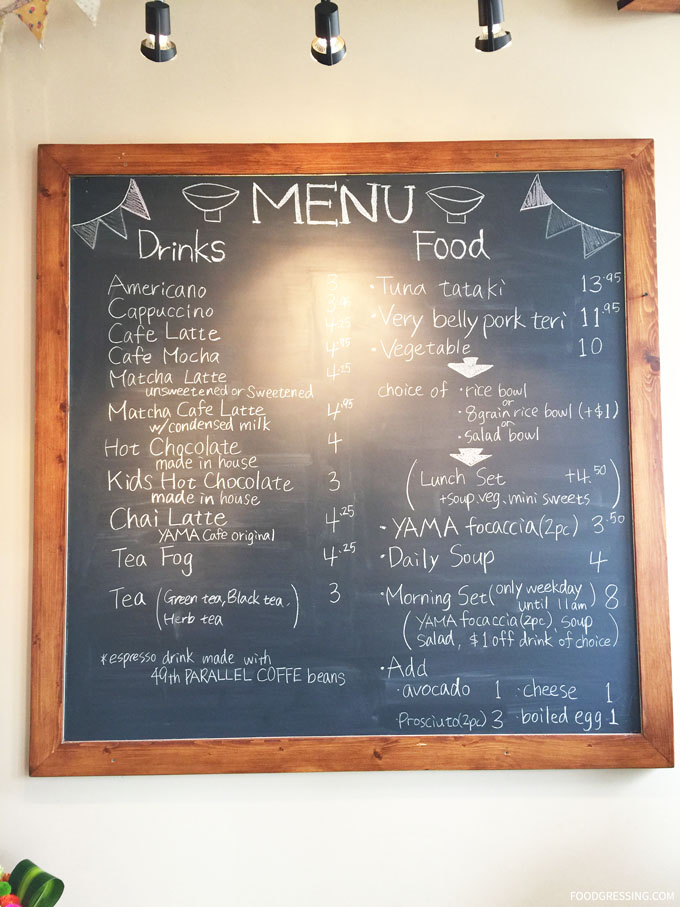 MENU
Drinks
Americano 3
Cappuccino
Cafe Latte
Cafe Mocha
Matcha Latte 4.25
unsweetened or Sweetened
Matcha Cafe Latte 4.95
w/condensed milk
Hot Chocolate 4
made in house
Kids Hot Chocolate 3
made in house
Chai Latte 4.25
YAMA Cafe original
Tea Fog 4.25
Tea (Green tea, Black tea, 3
Herb tea)
*espresso drink made with
49th PARALLEL COFFE beans
Food
·Tuna tataki 13.95
·Very belly pork teri 11.95
·Vegetable 10
choice of ·rice bowl
or
·8grain rice bowl (+$1)
or
·salad bowl
(Lunch Set +4.50
+soup.veg.mini sweets)
·YAMA focaccia(2pc) 3.50
·Daily Soup 4
·Morning Set(only weekday
until 11am) 8
(YAMA focaccia(2pc), soup
salad, $1 off drink of choice)
·Add
·avocado 1 ·cheese 1
·Prosciuto(2pc) 3 ·boiled egg 1
FOODGRESSING.COM